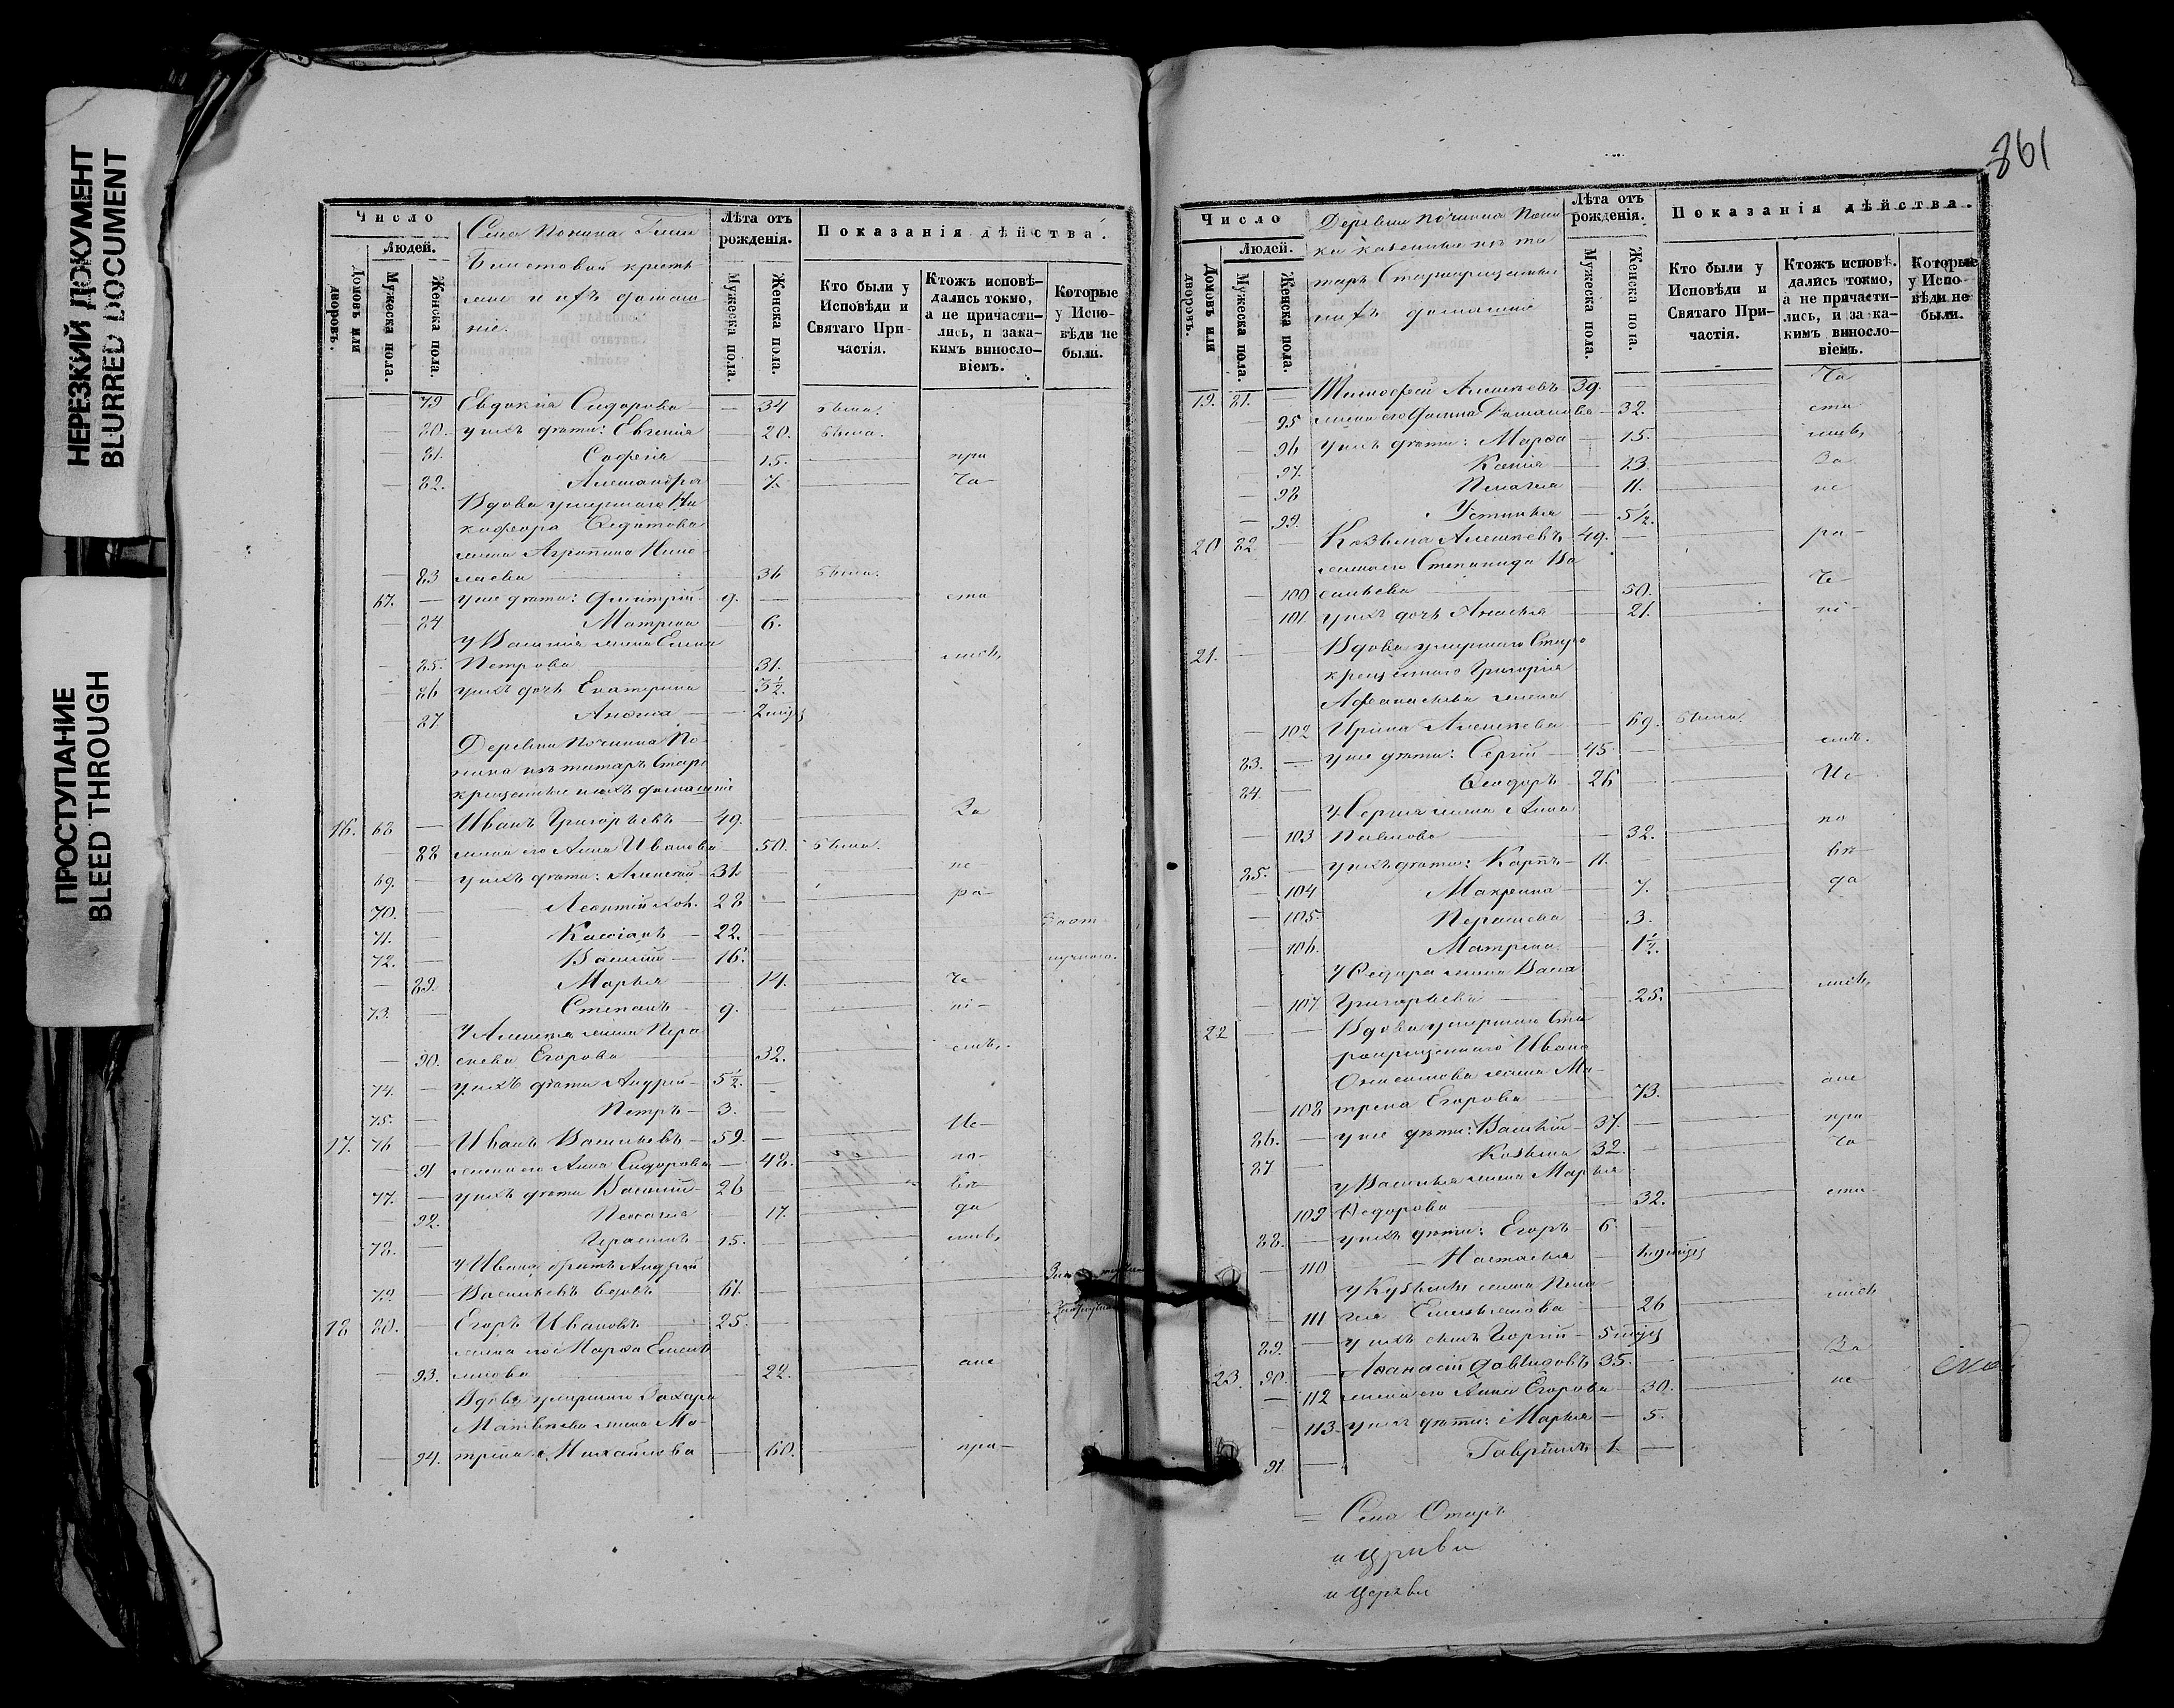 НЕРЕЗКИЙ ДОКУМЕНТ
BLURRED DOCUMENT
ПРОСТУПАНИЕ
BLEED THROUGH
Число
Людей.
Домовъ или дворовъ.
Мужеска пола.
Женска пола.
Села
крестья
и ихъ домаш
ніе.
Лѣта отъ рожденія.
Мужеска пола.
Женска пола.
Показанія дѣйства.
Кто были у Исповѣди и Святаго Причастія.
Ктожъ исповѣдались токмо, а не причастились, и за какимъ винословіемъ.
Которые у Исповѣди не были.
79 Евдокія Сидорова — 34 была.
80. у ихъ дѣти: Евгенія — 20. была.
81. Софія 15. при
82. Александра — 7. ча
Вдова умершаго Ни
кифора Ѳедотова
жена Агрипина Нико
83 лаева 36 была.
67. — у нее дѣти: Дмитрій — 9. — ста
84 Матрена 6.
У Василія жена Елена
85. Петрова 31. лись,
86 у ихъ дочь Екатерина 3½.
87. Анна — 2 мѣся
Деревни Починка По
изъ татаръ Старо
крещеные и ихъ домашніе
16. 68 — Иванъ Григорьевъ — 49. За
88 жена его Анна Иванова 50. была.
69. — у ихъ дѣти: Алексѣй — 31. не
70. — Леонтій хол. 28 ра
71. — Кассіанъ — 22.
72. — Василій — 16.
89. Марья 14. че
73. — Степанъ 9. ні
У Алексѣя жена Пара
90. скева Егорова 32. емъ,
74. — у ихъ дѣти Андрей — 5½.
75. — Петръ — 3.
17. 76 — Иванъ Васильевъ — 59. Ис
91 жена его Анна Сидорова — 48. по
77. — у ихъ дѣти Василій — 26 вѣ
92. Пелагея 17. да
78. — Герасимъ — 15. лись,
У Ивана братъ Андрей
79. — Васильевъ вдовъ 61.
18 80. — Егоръ Ивановъ 25.
жена его Марѳа Емель
93. янова 22. апе
Вдова умершаго Захара
Матвѣева жена Ма
94. трена Михайлова — 60. при
861
Число
Людей.
Домовъ или дворовъ.
Мужеска пола.
Женска пола.
Деревни Починка Пони
ки крещеные изъ та
таръ Старокрещеные
и ихъ домашніе
Лѣта отъ рожденія.
Мужеска пола.
Женска пола.
Показанія дѣйства.
Кто были у Исповѣди и Святаго Причастія.
Ктожъ исповѣ. дались токмо, а не причастились, и за какимъ винословіемъ.
Которые у Исповѣди не были.
19. 81. — Тимофей Алексѣевъ 39. — Ча
95 жена его Романова — 32. сти
96 у ихъ дѣти: Марѳа — 15. лись,
97. Ксенія 13. За
98 Пелагея 11. не
99. Устинья — 5½.
20 82 — Козьма Алексѣевъ 49. ра
жена его Степанида Ва
100 сильева 50. че
101. у ихъ дочь Анисья 21. ні
21. — Вдова умершаго Старо
крещенаго Григорія
Афанасьева жена
102 Ирина Алексѣева — 69. была.
83. — у нее дѣти: Сергій — 45. емъ.
84. — Ѳеодоръ — 26 Ис
У Сергія жена Анна
103 Павлова 32. по
85. — у ихъ дѣти: Карпъ — 11. вѣ
104 Макрина 7. да
105. Парасева — 3.
106. Матрена 1½.
У Ѳедора жена Васа
107. Григорьева 25. лись,
22 — — Вдова умершаго Ста
рокрещенаго Ивана
Онисимова жена Ма
108 трена Егорова 73. апе
86. — у нее дѣти: Василій — 37. при
87 — Козьма 32. ча
у Василья жена Марья
109 Ѳедорова 32. сти
88. — у ихъ дѣти: Егоръ 6
110 — Настасья
У Кузьмы жена Пела
111 гея Емельянова 26 лись
89. — у ихъ сынъ Георгій — 5 мѣся
23. 90. — Аѳанасій Давыдовъ 35. За
112 жена его Анна Егорова — 30. не
113. у ихъ дѣти: Марья — 5.
91 — Гаврiилъ 1. —
Села Отаръ
и Церкви
и Церкви